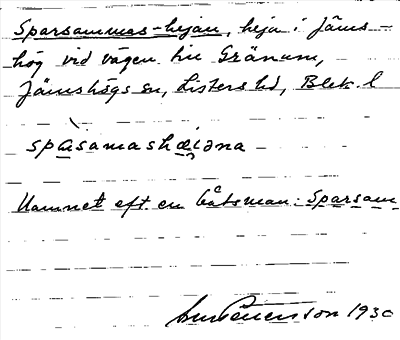 Sparsammes-hejan, heja i Jäms-
hög vid vägen till Gränum,
Jämshögs sn, Listers hd, Blek. l
spàsamashæiǝna
Namnet eft. en båtsman: Sparsam
1930